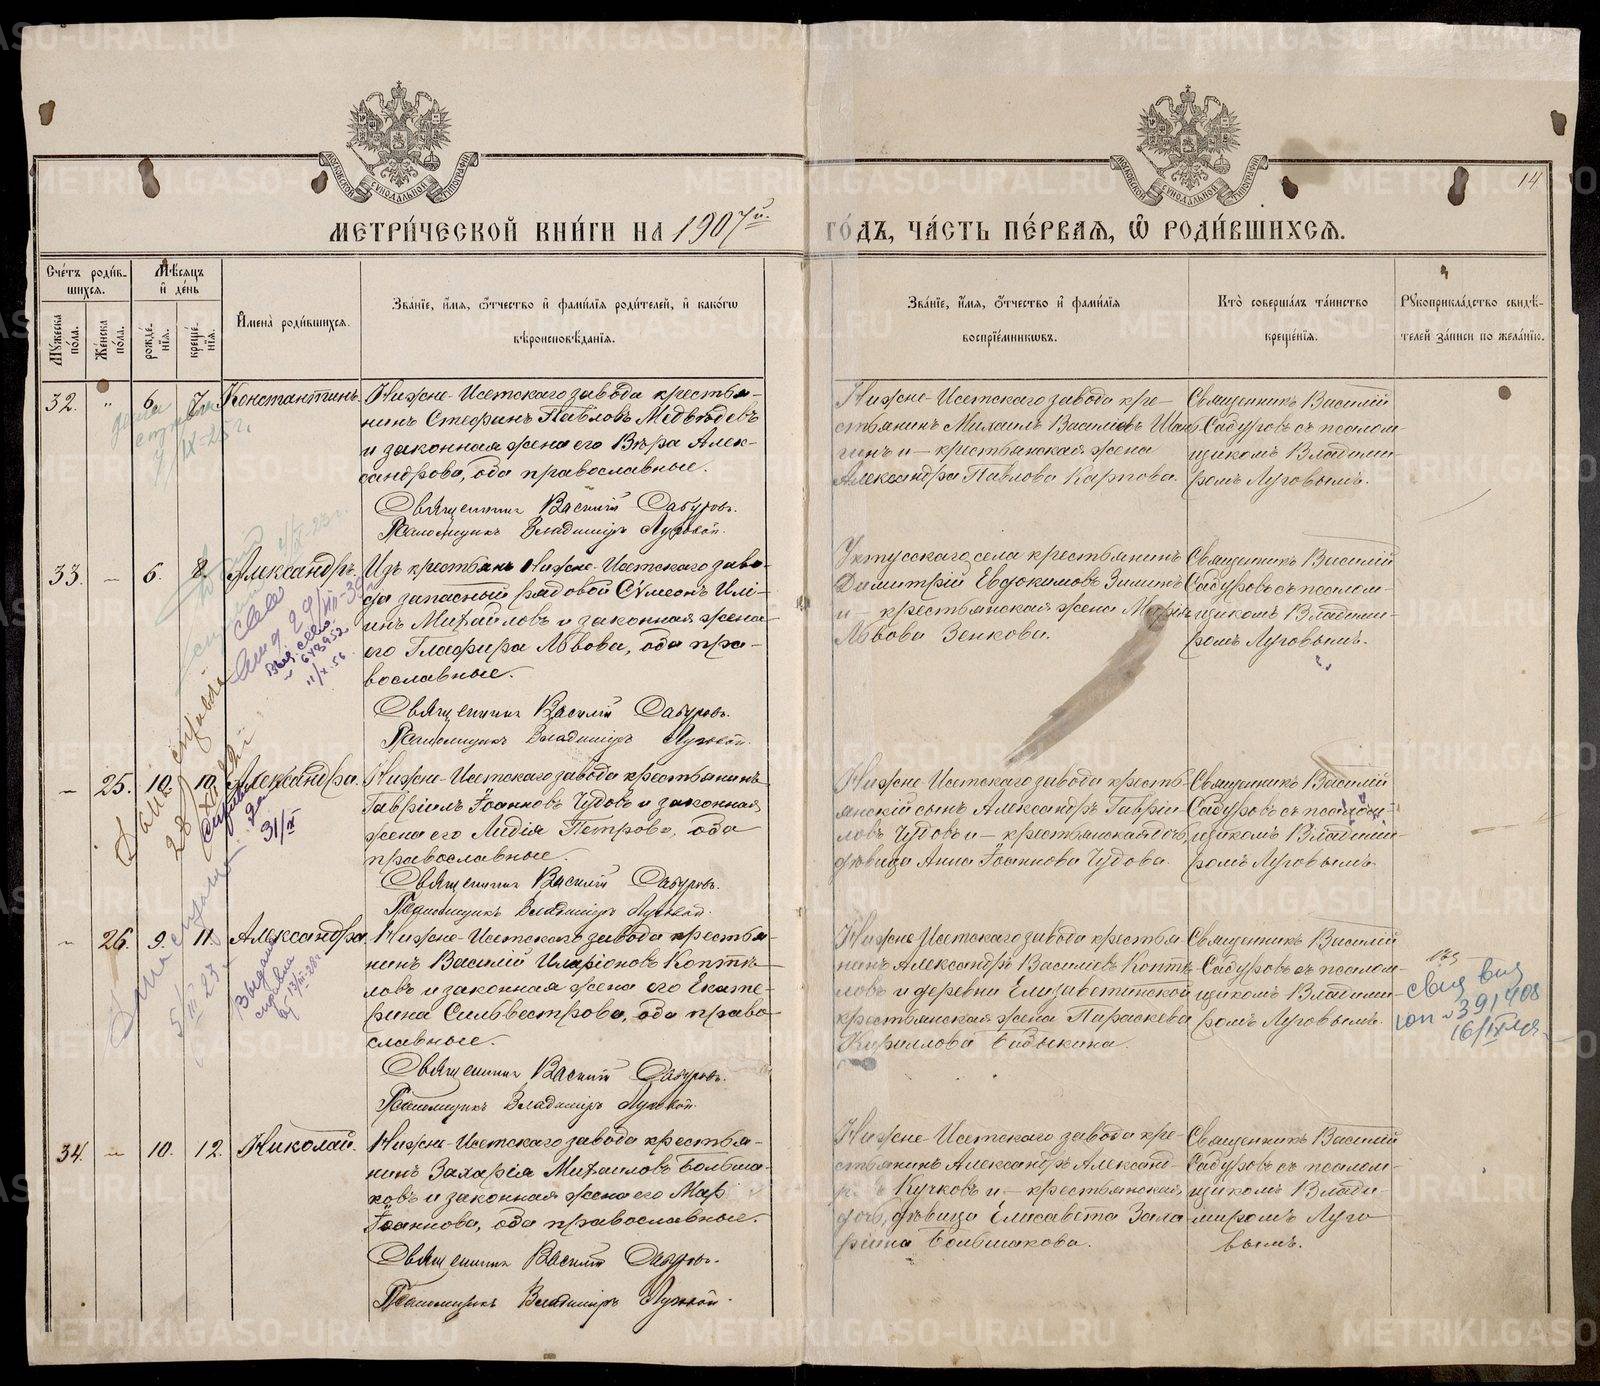 METRIKI.GASO-URAL.RU
МОСКОВСКОЙ СѴНОДАЛЬНОЙ ТИПОГРАФІИ
МОСКОВСКОЙ СѴНОДАЛЬНОЙ ТИПОГРАФІИ
14
МЕТРИ́ЧЕСКОЙ КНИ́ГИ НА 1907й.
ГО́ДЪ, ЧА́СТЬ ПЕ́РВАЯ, Ѿ РОДИ́ВШИХСЯ.
Сче́тъ роди́вшихся.
Му́жеска по́ла.
Же́нска по́ла.
Мѣ́сяцъ и҆ де́нь
рожде́нїя.
креще́нїя.
И҆мена̀ роди́вшихся.
Зва́нїе, и҆́мя, ѻ҆́тчество и҆ фами́лїя роди́телей, и҆ како́гѡ
вѣроисповѣ́данїя.
Зва́нїе, и҆́мя, ѻ҆́тчество и҆ фами́лїя
воспрїе́мникѡвъ.
Кто̀ соверша́лъ та́инство
креще́нїя.
Рꙋкоприкла́дство свидѣ́-
телей за́писи по жела́нїю.
32. " 6. 7. Константинъ.
Нижне-Исетскаго завода крестья-
нинъ Стефанъ Павловъ Медвѣдевъ
и законная жена его Вѣра Алек-
сандрова, оба православные.
Священникъ Василій Сабуровъ.
Псаломщикъ Владиміръ Луговой.
Нижне-Исетскаго завода кре-
стьянинъ Михаилъ Василіевъ
и - крестьянская жена
Александра Павлова Карпова.
Священникъ Василій
Сабуровъ съ псалом-
щикомъ Владими-
ромъ Луговымъ.
33. - 6. 8. Александръ.
Изъ крестьянъ Нижне-Исетскаго заво-
да запасный рядовой Сѵмеонъ Илі-
инъ Михайловъ и законная жена
его Глафира Львова, оба пра-
вославные.
Священникъ Василій Сабуровъ.
Псаломщикъ Владиміръ Луговой.
Уктусскаго села крестьянинъ
Димитрій Евдокимовъ Зиминъ
и - крестьянская жена Марія
Львова Зенкова.
Священникъ Василій
Сабуровъ съ псалом-
щикомъ Владими-
ромъ Луговымъ.
- 25. 10. 10. Александра.
Нижне-Исетскаго завода крестьянинъ
Гавріилъ Іоанновъ Чудовъ и законная
жена его Лидія Петрова, оба
православные.
Священникъ Василій Сабуровъ.
Псаломщикъ Владиміръ Луговой.
Нижне-Исетскаго завода кресть-
янскій сынъ Александръ Гаврии-
ловъ Чудовъ и - крестьянская дочь,
дѣвица Анна Іоаннова Чудова.
Священникъ Василій
Сабуровъ съ псалом-
щикомъ Владими-
ромъ Луговымъ.
- 26. 9. 11. Александра.
Нижне-Исетскаго завода крестья-
нинъ Василій Иларіоновъ Коптѣ-
ловъ и законная жена его Екате-
рина Сильвестрова, оба право-
славные.
Священникъ Василій Сабуровъ.
Псаломщикъ Владиміръ Луговой.
Нижне-Исетскаго завода крестья-
нинъ Александръ Василіевъ Коптѣ-
ловъ и деревни Елизаветинской
крестьянская жена Параскева
Кириллова Бабыкина.
Священникъ Василій
Сабуровъ съ псалом-
щикомъ Владими-
ромъ Луговымъ.
34. - 10. 12. Николай.
Нижне-Исетскаго завода крестья-
нинъ Захарія Михаиловъ Больша-
ковъ и законная жена его
Іоаннова, оба православные.
Священникъ Василій Сабуровъ.
Псаломщикъ Владиміръ Луговой.
Нижне-Исетскаго завода кре-
стьянинъ Александръ Александ-
Кучковъ и - крестьянская
дочь, дѣвица Елисавета Заха-
ріина Большакова.
Священникъ Василій
Сабуровъ съ псалом-
щикомъ Влади-
миромъ Луго-
вымъ.